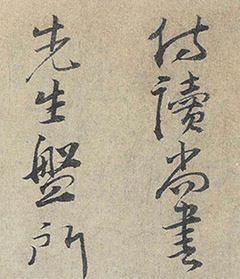 侍讀尚書
先生盤所